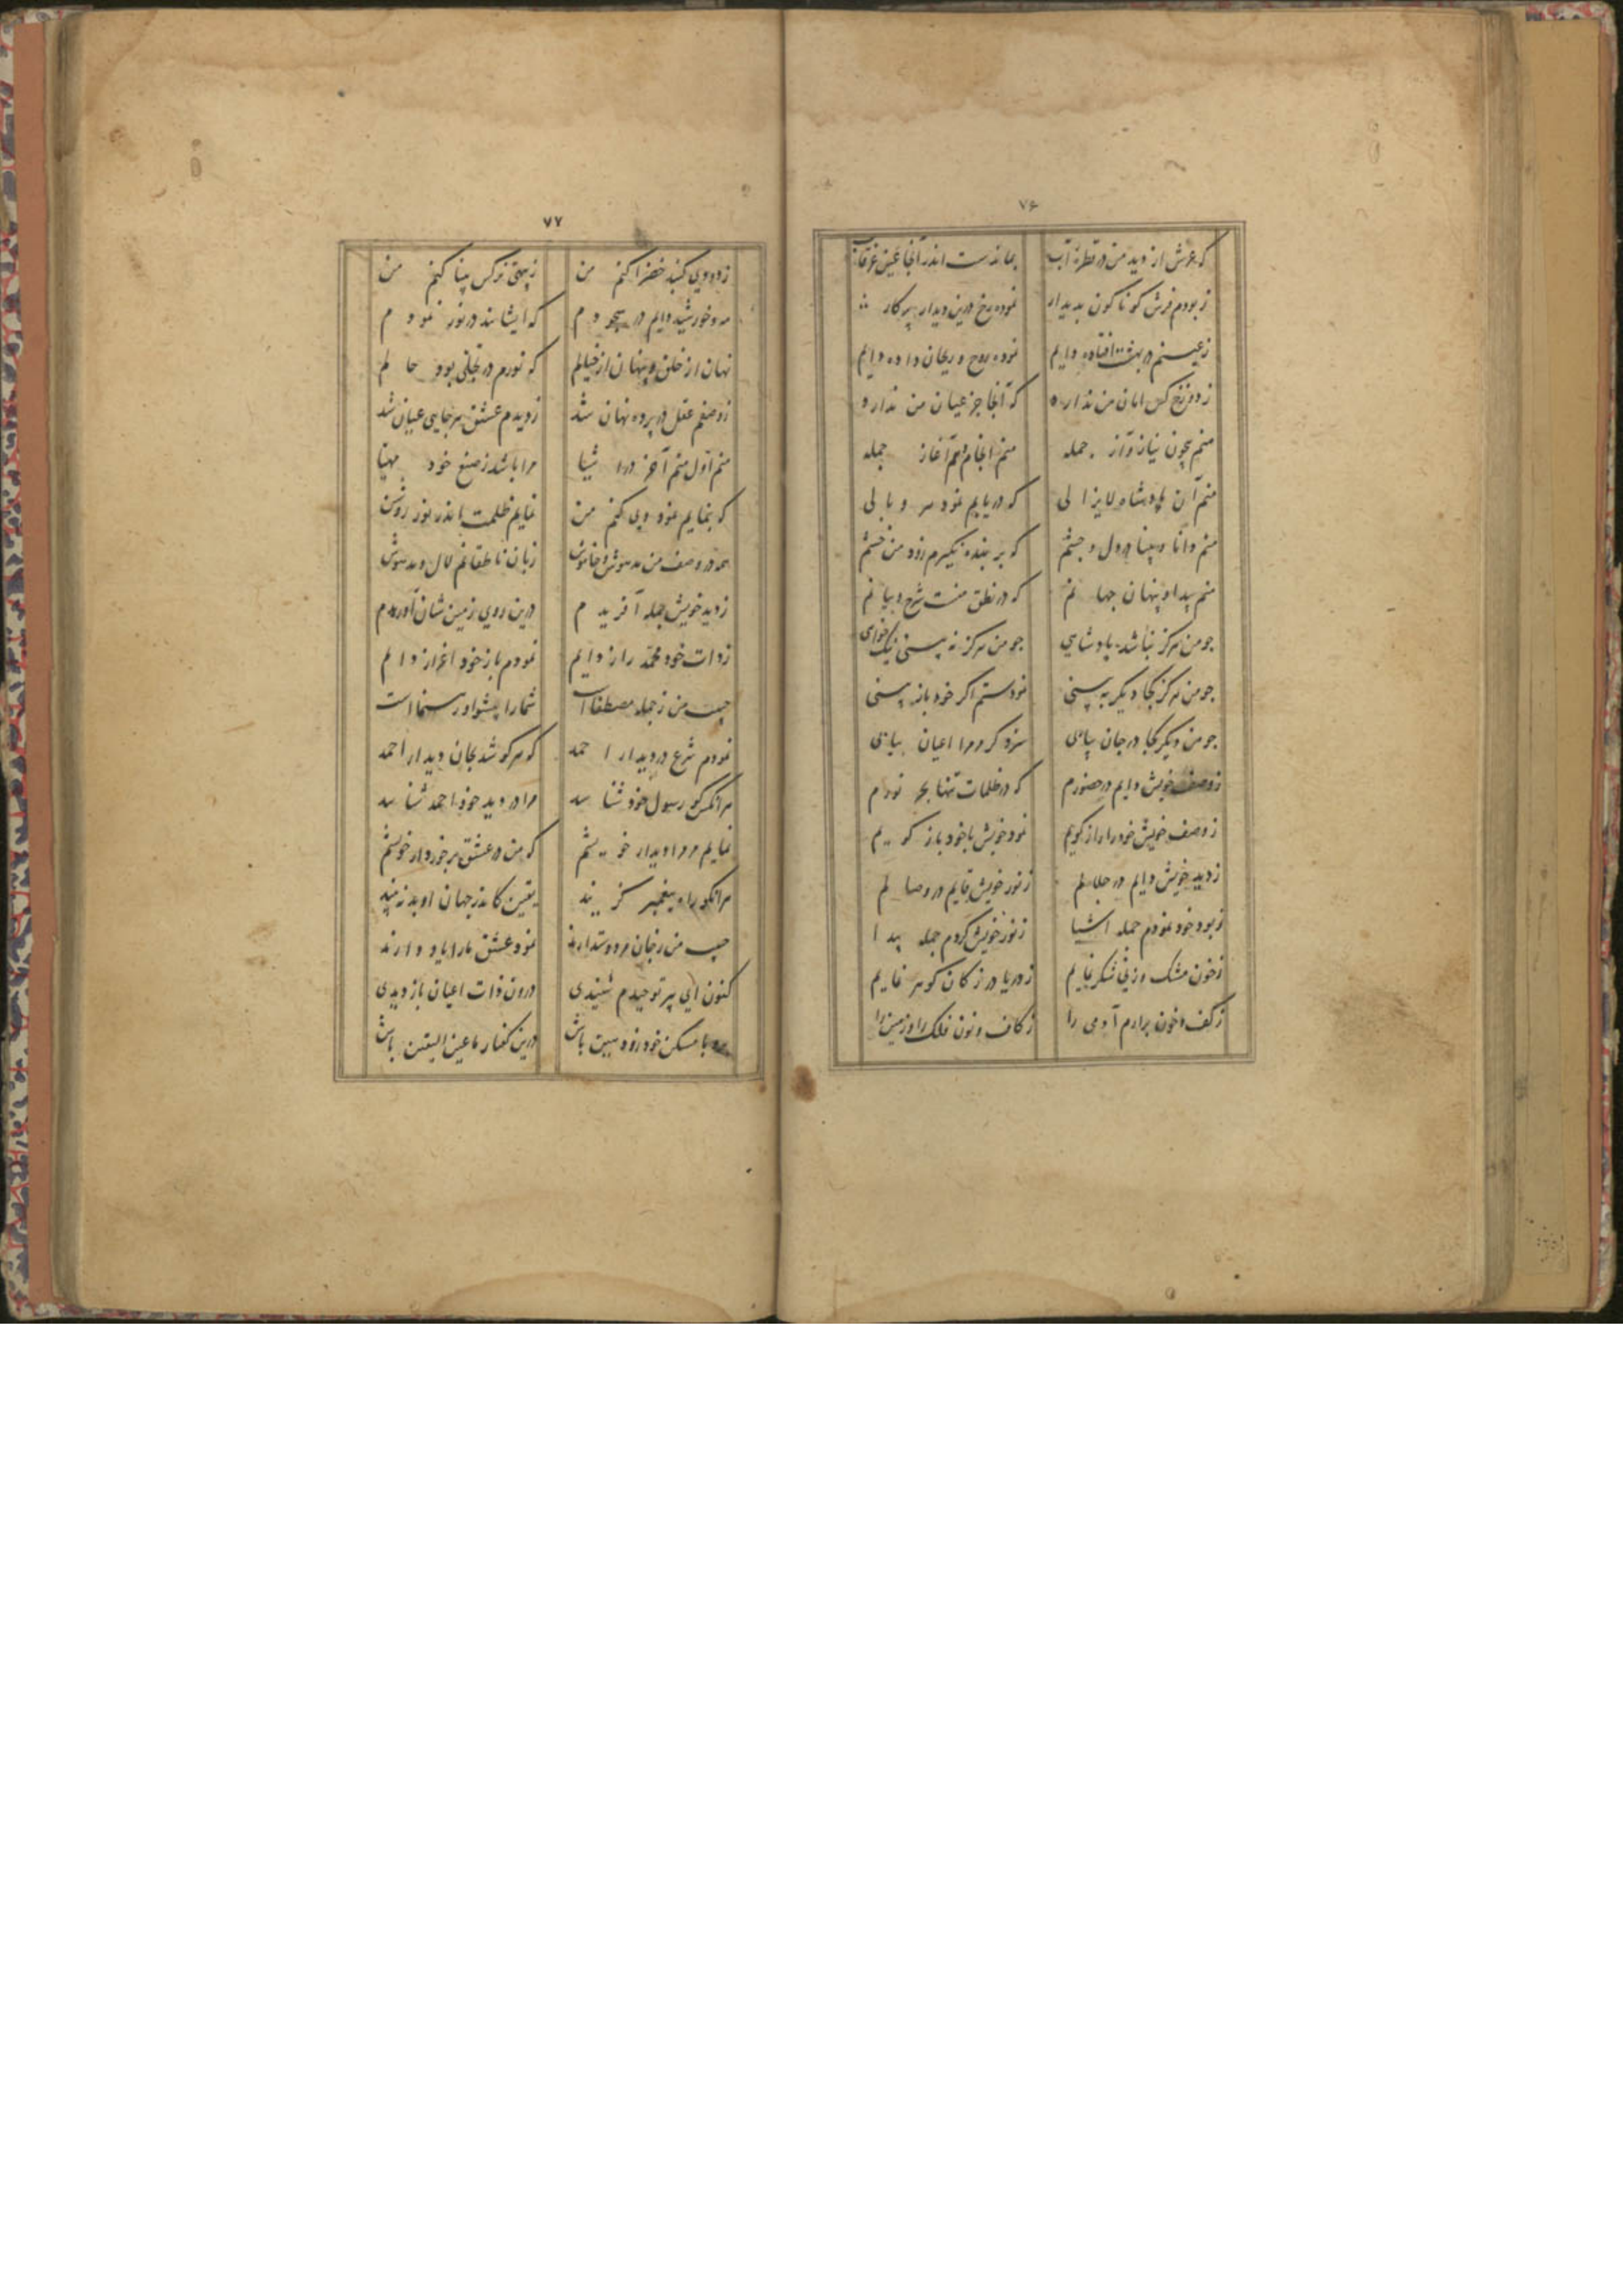 ۷۶
که عرش از دید من در قطره آب بماندست اندر آنجا عین غرقاب
ز بودم فرش کوناکون بدیدار نموده رخ درین دیدار پرکار
ز عینم در بهشت افتاده دایم نموده روح و ریحان داده دایم
ز دوزخ کس امان من ندارد که آنجا جز عیان من ندارد
منم بیچون نیاز و آز جمله منم انجام و هم آغاز جمله
منم آن پادشاه لایزالی که دریابم نمود سر و بالی
منم دانا و بینا در دل و چشم که بر بنده نکیرم زود من خشم
منم پیدا و پنهان جهانم که در نطق منت شرح و بیانم
جو من هرکز نباشد پادشاهی جو من هرکز نه بینی نیک خواهی
جو من هرکز کجا دیکر به بینی نمودستم اکر خود باز بینی
جو من دیکر کجا در جان بیابی سزد کر مرا اعیان بیابی
ز وصف خویش دایم در حضورم که در ظلمات تنها بحر نورم
ز وصف خویش خود را راز کویم نمود خویش با خود باز کویم
ز دید خویش دایم در جلالم ز نور خویش قایم در وصالم
ز بود خود نمودم جمله اشیا ز نور خویش کردم جمله پیدا
ز خون مشک و ز نی شکر نمایم ز دریا در ز کان کوهر نمایم
ز کف و خون برارم آدمی را ز کاف و نون فلک را و زمین را
۷۷
ز دودی کنبد خضرا کنم من ز پیهی نرکس بینا کنم من
مه و خورشید دایم در سجودم که ایشانند در نور نمودم
نهان از خلق و پنهان از خیالم که نورم در تجلی بود حالم
ز وصفم عقل در پرده نهان شد ز دیدم عشق هر جایی عیان شد
منم اول منم آخر در اشیا مرا باشد ز صنع خود مهیا
که بنمایم نمود وپی کنم من نمایم ظلمت اندر نور روشن
همه در وصف من مدهوش و خاموش زبان ناطقانم لال و مدهوش
ز دید خویش جمله آفریدم درین روی زمین شان آوریدم
ز ذات خود محمد را ز دایم نمودم باز خود اعزاز دایم
حبیب من ز جمله مصطفا است شما را پیشوا و رهنما است
نمودم شرع در دیدار احمد که هر کو شد بجان دیدار احمد
هر انکس کو رسول خود شناسد مرا در دید خود احمد شناسد
نمایم مر ورا دیدار خویشم که من در عشق برخوردار خویشم
هر انکو راه پیغمبر کزیند یقین کاندر جهان او بد نه بیند
حبیب من ز جان مر دوستدارند نمود عشق ما را یاد دارند
کنون ای پیر توحیدم شنیدی درون ذات اعیان باز دیدی
با مسکن خود زود بیت باش درین کفتار ما عین الیقین باش